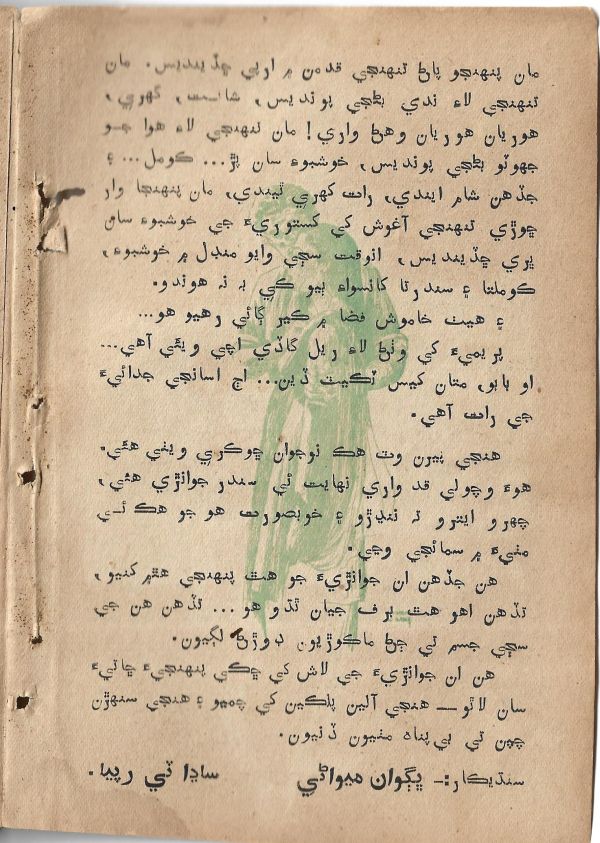 مان پنهنجو پاڻ تنهنجي قدمن ۾ ارپي ڇڏينديس. مان
تنهنجي لاءِ ندي بڻجي پونديس، شانت، گهري،
هوريان هوريان وهڻ واري! مان تنهنجي لاءِ هوا جو
جهوٽو بڻجي پونديس، خوشبوءِ سان ڀر... ڪومل... ۽
جڏهن شام ايندي، رات گهري ٿيندي، مان پنهنجا وار
ڇوڙي تنهنجي آغوش کي کستوريءَ جي خوشبوءِ سان
ڀري ڇڏينديس، انوقت سڄي وايو منڊل ۾ خوشبوءِ،
ڪوملتا ۽ سندرتا کانسواءِ ٻيو ڪي به نه هوندو.
۽ هيٺ خاموش فضا ۾ ڪير ڳائي رهيو هو...
پريميءَ کي وٺڻ لاءِ ريل گاڏي اچي ويئي آهي...
او بابو، متان کيس ٽڪيٽ ڏين... اڄ اسانجي جدائيءَ
جي رات آهي.
هنجي پيرن وٽ هڪ نوجوان ڇوڪري ويٺي هئي.
هوءَ وچولي قد واري نهايت ئي سندر جوانڙي هئي،
چهرو ايترو ته ننڍڙو ۽ خوبصورت هو جو هڪ ئي
مٺيءَ ۾ سمائجي وڃي.
هن جڏهن ان جوانڙيءَ جو هٿ پنهنجي هٿ ۾ کنيو،
تڏهن اهو هٿ برف جيان ٿڌو هو... تڏهن هن جي
سڄي جسم تي ڄڻ ماڪوڙيون ڊوڙڻ لڳيون.
هن ان جوانڙيءَ جي لاش کي ڇڪي پنهنجيءَ ڇاتيءَ
سان لاٿو — هنجي آلين پلڪين کي چميو ۽ هنجي سنهڙن
چپن تي بي پناهه مٺيون ڏنيون.
سنڌيڪار:- ڀڳوان ميواڻي ساڍا ٽي رپيا.